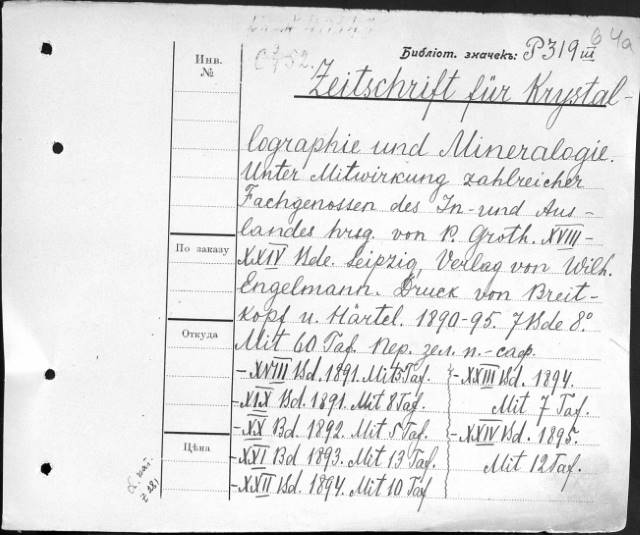 64a
Библіот. значекъ: P319 III
Инв.
№
Zeitschrift für Krystal-
lographie und Mineralogie.
Unter Mitwirkung zahlreicher
Fachgenossen des In- und Aus-
landes hrsg. von P. Groth. XVIII-
По заказу
XXIV Bde. Leipzig, Verlag von Wilh.
Engelmann. Druck von Breit-
kopf u. Härtel. 1890-95. 7 Bde 8°
Откуда
Mit 60 Taf. Пер. зел. п.-саф.
- XVIII Bd. 1891. Mit 5 Taf.
- XIX Bd. 1891. Mit 8 Taf.
- XX Bd. 1892. Mit 5 Taf.
Цѣна
- XXI Bd 1893. Mit 13 Taf.
- XXII Bd. 1894. Mit 10 Taf
- XXIII Bd. 1894.
Mit 7 Taf.
- XXIV Bd. 1895.
Mit 12 Taf.